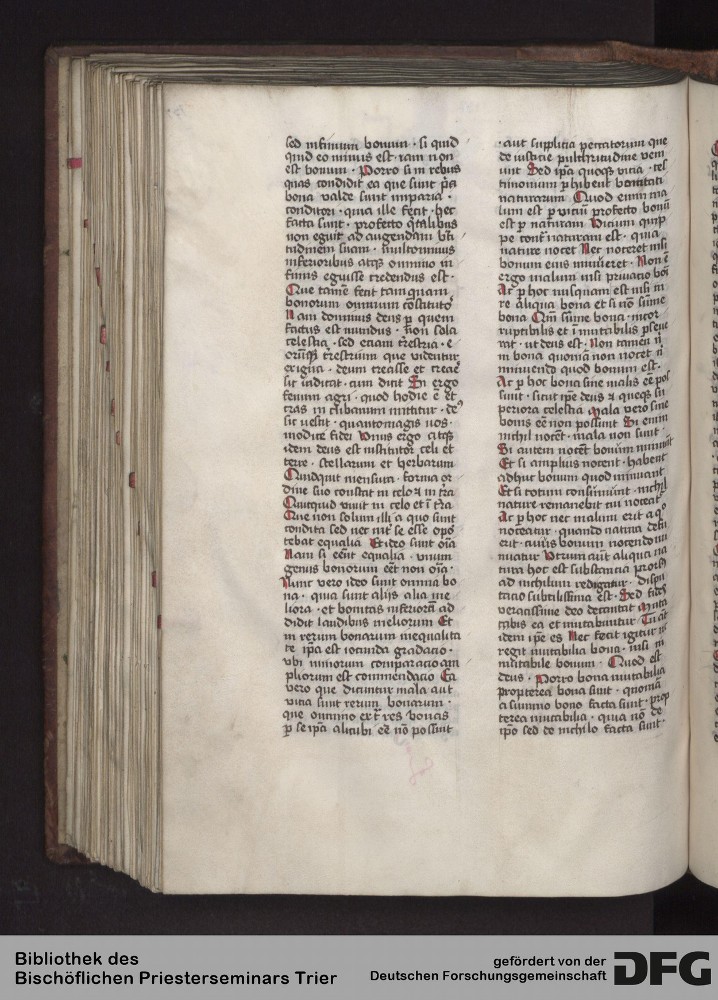 sed infimum bonum · si quid
quid eo minus est · iam non
est bonum · Porro si in rebus
quas condidit ea que sunt p̄ci
bona valde sunt imparia ·
conditori · quia ille fecit · hec
facta sunt · profecto qͥtalibus
non eguit ad augendam bti
tudinem suam · multominus
inferioribus atqꝫ omnino in
fimis eguisse credendus est ·
Que tamē fecit tamquam
bonorum omnium cōstitutoʳ
Nam dominus deus ꝑ quem
factus est mundus · non sola
celestia · sed eciam t̄restria · e
orūqꝫ t̄restrium que videntur
exigua · deum creasse et creaē
sic indicat · cum dicit Si ergo
fenum agri · quod hodie ē et
cras in clibanum mittitur · deꝰ
sic vestit · quantomagis uos ·
modice fidei Unus ergo atqꝫ
idem deus est institutor celi et
terre · stellarum et herbarum
Quidquit mensura · forma or
dine suo constat in celo ⁊ in t̄ra
Quitquid viuit in celo et ī t̄ra
Que non solum illi a quo sunt
condita sed nec int̄ se esse opoꝛ
tebat equalia Et ideo sunt oīa
Nam si eēnt equalia · vnum
genus bonorum eēt non oīa ·
Nunc vero ideo sunt omnia bo
na · quia sunt alijs alia me
liora · et bonitas inferiorū ad
didit laudibus meliorum Et
in rerum bonarum inequalita
te ipā est iocunda gradacio ·
vbi minorum comparacio am
pliorum est commendacio Ea
vero que dicuntur mala aut
vicia sunt rerum bonarum ·
que omnino ext̄ res bonas
ꝑ se ipā alicubi eē nō possunt
· aut suplicia peccatorum que
de iusticie pulchritudine veni
unt Sed ipā quoqꝫ vicia · tes
timonium ꝑhibent bonitati
naturarum Quod enim ma
lum est ꝑ viciū profecto bonū
est ꝑ naturam Vicium quip
pe cont̄ naturam est · quia
nature nocet Nec noceret nisi
bonum eius minueret · Non ē
ergo malum nisi priuacio boī
Ac ꝑ hoc nusquam est nisi in
re aliqua bona et si nō sūme
bona Qm̄ sūme bona · incor
ruptibilis et īmutabilis ꝑseue
rat · ut deus est · Non tamen nͥ
in bona quoniā non nocet nͥ
minuendo quod bonum est ·
Ac ꝑ hoc bona sine malis eē pos
sunt · sicut ipē deus ⁊ queqꝫ su
periora celestia Mala vero sine
bonis eē non possunt Si enim
nichil nocēt · mala non sunt ·
Si autem nocēt bonum minuūt
Et si amplius nocent · habent
adhuc bonum quod minuant
Et si totum consumunt · nichil
nature remanebit cui noceat
Ac ꝑ hoc nec malum erit a qͦ
noceatur · quando natura deeri
erit · cuius bonum nocendo mi
nuatur Vtrum aūt aliqua na
tura hoc est substancia prorsꝰ
ad nichilum redigatur · dispu
tacio subtilissima est · Sed fides
veracissime deo decantat Muta
tabis ea et mutabuntur · Tu aūt
idem ipē es Nec fecit igitur in
regit mutabilia bona · nisi in
mutabile bonum · Quod est
deus · Porro bona mutabilia
propterea bona sunt · quoniā
a summo bono facta sunt · prop
terea mutabilia · quia nō de
ipō sed de nichilo facta sunt ·
Bibliothek des
Bischöflichen Priesterseminars Trier
gefördert von der
Deutschen Forschungsgemeinschaft
DFG